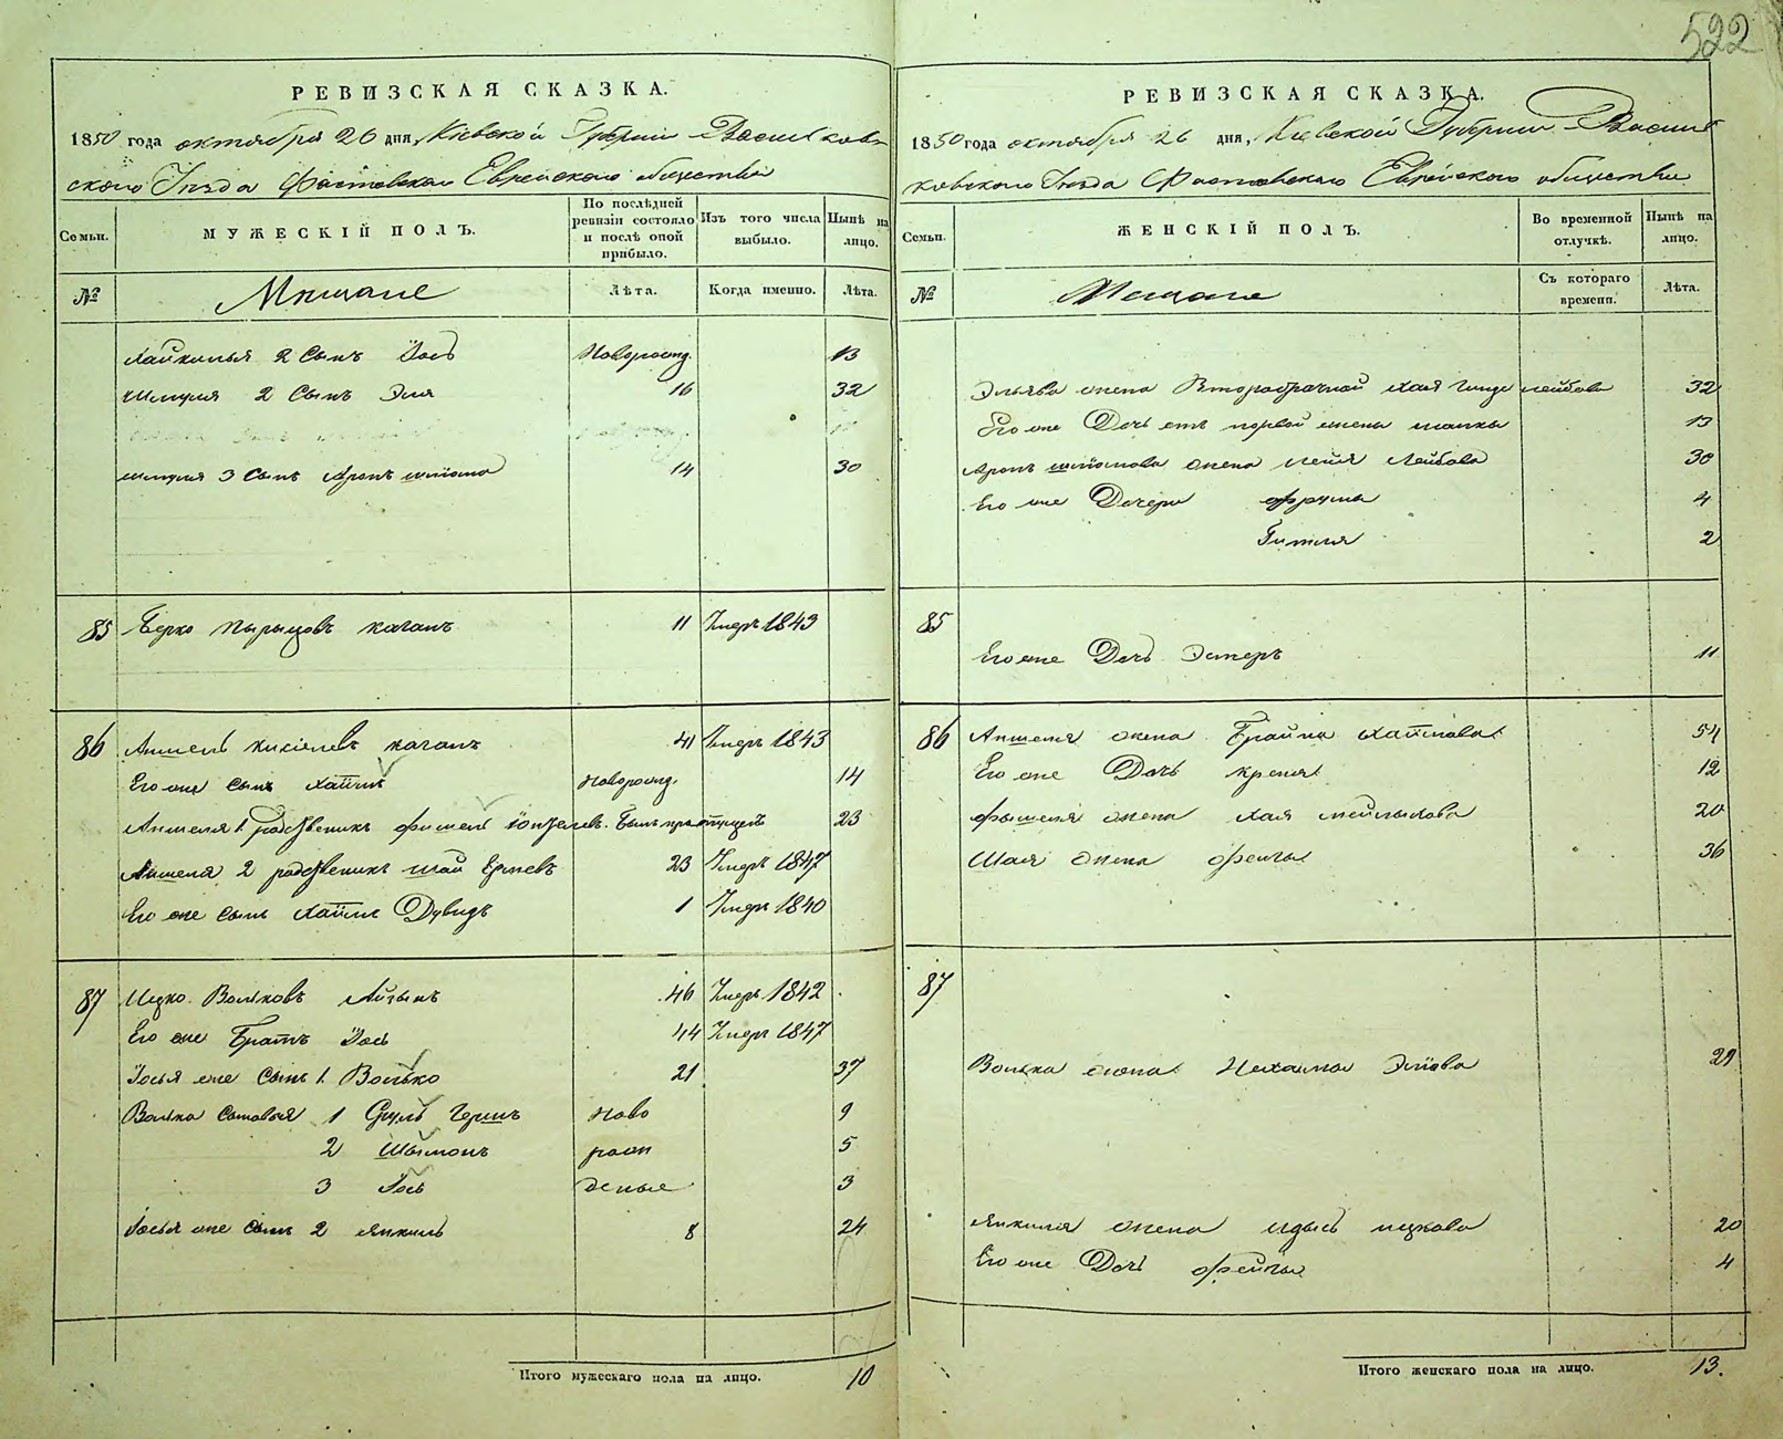 522
РЕВИЗСКАЯ СКАЗКА.
1850 года октября 26 дня, Кіевской Губерніи Васильков-
скаго Уезда Фастовскаго Еврейскаго общества
Семьи.
МУЖЕСКІЙ ПОЛЪ.
По послѣдней ревизіи состояло и послѣ оной прибыло.
Изъ того числа выбыло.
Нынѣ на лицо.
№
Мещане
Лѣта.
Когда именно.
Лѣта.
Хаймилья 2 Сынъ Іось Новорожд. 13
Шмуля 2 Сынъ Эля 16 32
Шмуля 3 Сынъ Аронъ Шліома 14 30
85 Берко Пырыцовъ Каганъ 11 Умеръ 1843
86 Аншель Кисіелевъ Каганъ 41 Умеръ 1843
Его же сынъ Хаимъ Новорожд. 14
Аншеля 1 родственикъ Фишель Іонкелев. Былъ 23
Аншеля 2 родственикъ Шаи 23 Умеръ 1847
Его же сынъ Хаимъ Дувидъ 1 Умеръ 1840
87 Ицко Вольковъ Айзынъ 46 Умеръ 1842
Его же Братъ Іось 44 Умеръ 1847
Іосья же сынъ 1 Волько 21 37
Волька сыновья 1 Сруль Гершъ Ново 9
2 Шьмонъ рож 5
3 Іось деные 3
Іосья же сынъ 2 Янкель 8 24
Итого мужескаго пола на лицо. 10
РЕВИЗСКАЯ СКАЗКА.
1850 года октября 26 дня, Кіевской Губерніи Василь-
ковскаго Уезда Фастовскаго Еврейскаго общества
Семьи.
ЖЕНСКІЙ ПОЛЪ.
Во временной отлучкѣ.
Нынѣ на лицо.
№
Мещане
Съ котораго времени.
Лѣта.
Эльява жена Второбрачная Хая Лейбова 32
Его же Дочь отъ первой жены 13
Аронъ Шліомова жена Лейбова 30
Его же Дочери Фрума 4
Гитля 2
85
Его же Дочь Эстеръ 11
86 Аншеля жена Брайна Хаимова 54
Его же Дочь Креня 12
Фишеля жена Хая 20
Шая жена Фейга 36
87
Волька жена Нехама 29
Янкиля жена Идысь Ицкова 20
Его же Дочь Фейга 4
Итого женскаго пола на лицо. 13.